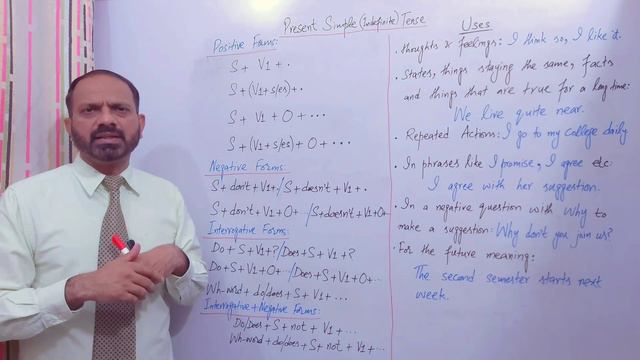 Present Simple (Indefinite) Tense
Positive Forms:
S + V1 + .
S + (V1 + s/es) + ...
S + V1 + O + ...
S + (V1 + s/es) + O + ...
Negative Forms:
S + don't + V1 + / S + doesn't + V1 + .
S + don't + V1 + O + / S + doesn't + V1 + O
Interrogative Forms:
Do + S + V1 + ? / Does + S + V1 + ?
Do + S + V1 + O + .. / Does + S + V1 + O + ..
Wh-word + do/does + S + V1 + ...
Interrogative + Negative Forms:
Do/Does + S + not + V1 + ...
Wh-word + do/does + S + not + V1 + ...
Uses
. thoughts & feelings: I think so, I like it.
. States, things staying the same, facts
and things that are true for a long time:
We live quite near.
. Repeated Actions: I go to my college daily
. In phrases like I promise, I agree etc:
I agree with her suggestion.
. In a negative question with Why to
make a suggestion: Why don't you join us?
. For the future meaning:
The second semester starts next
week.